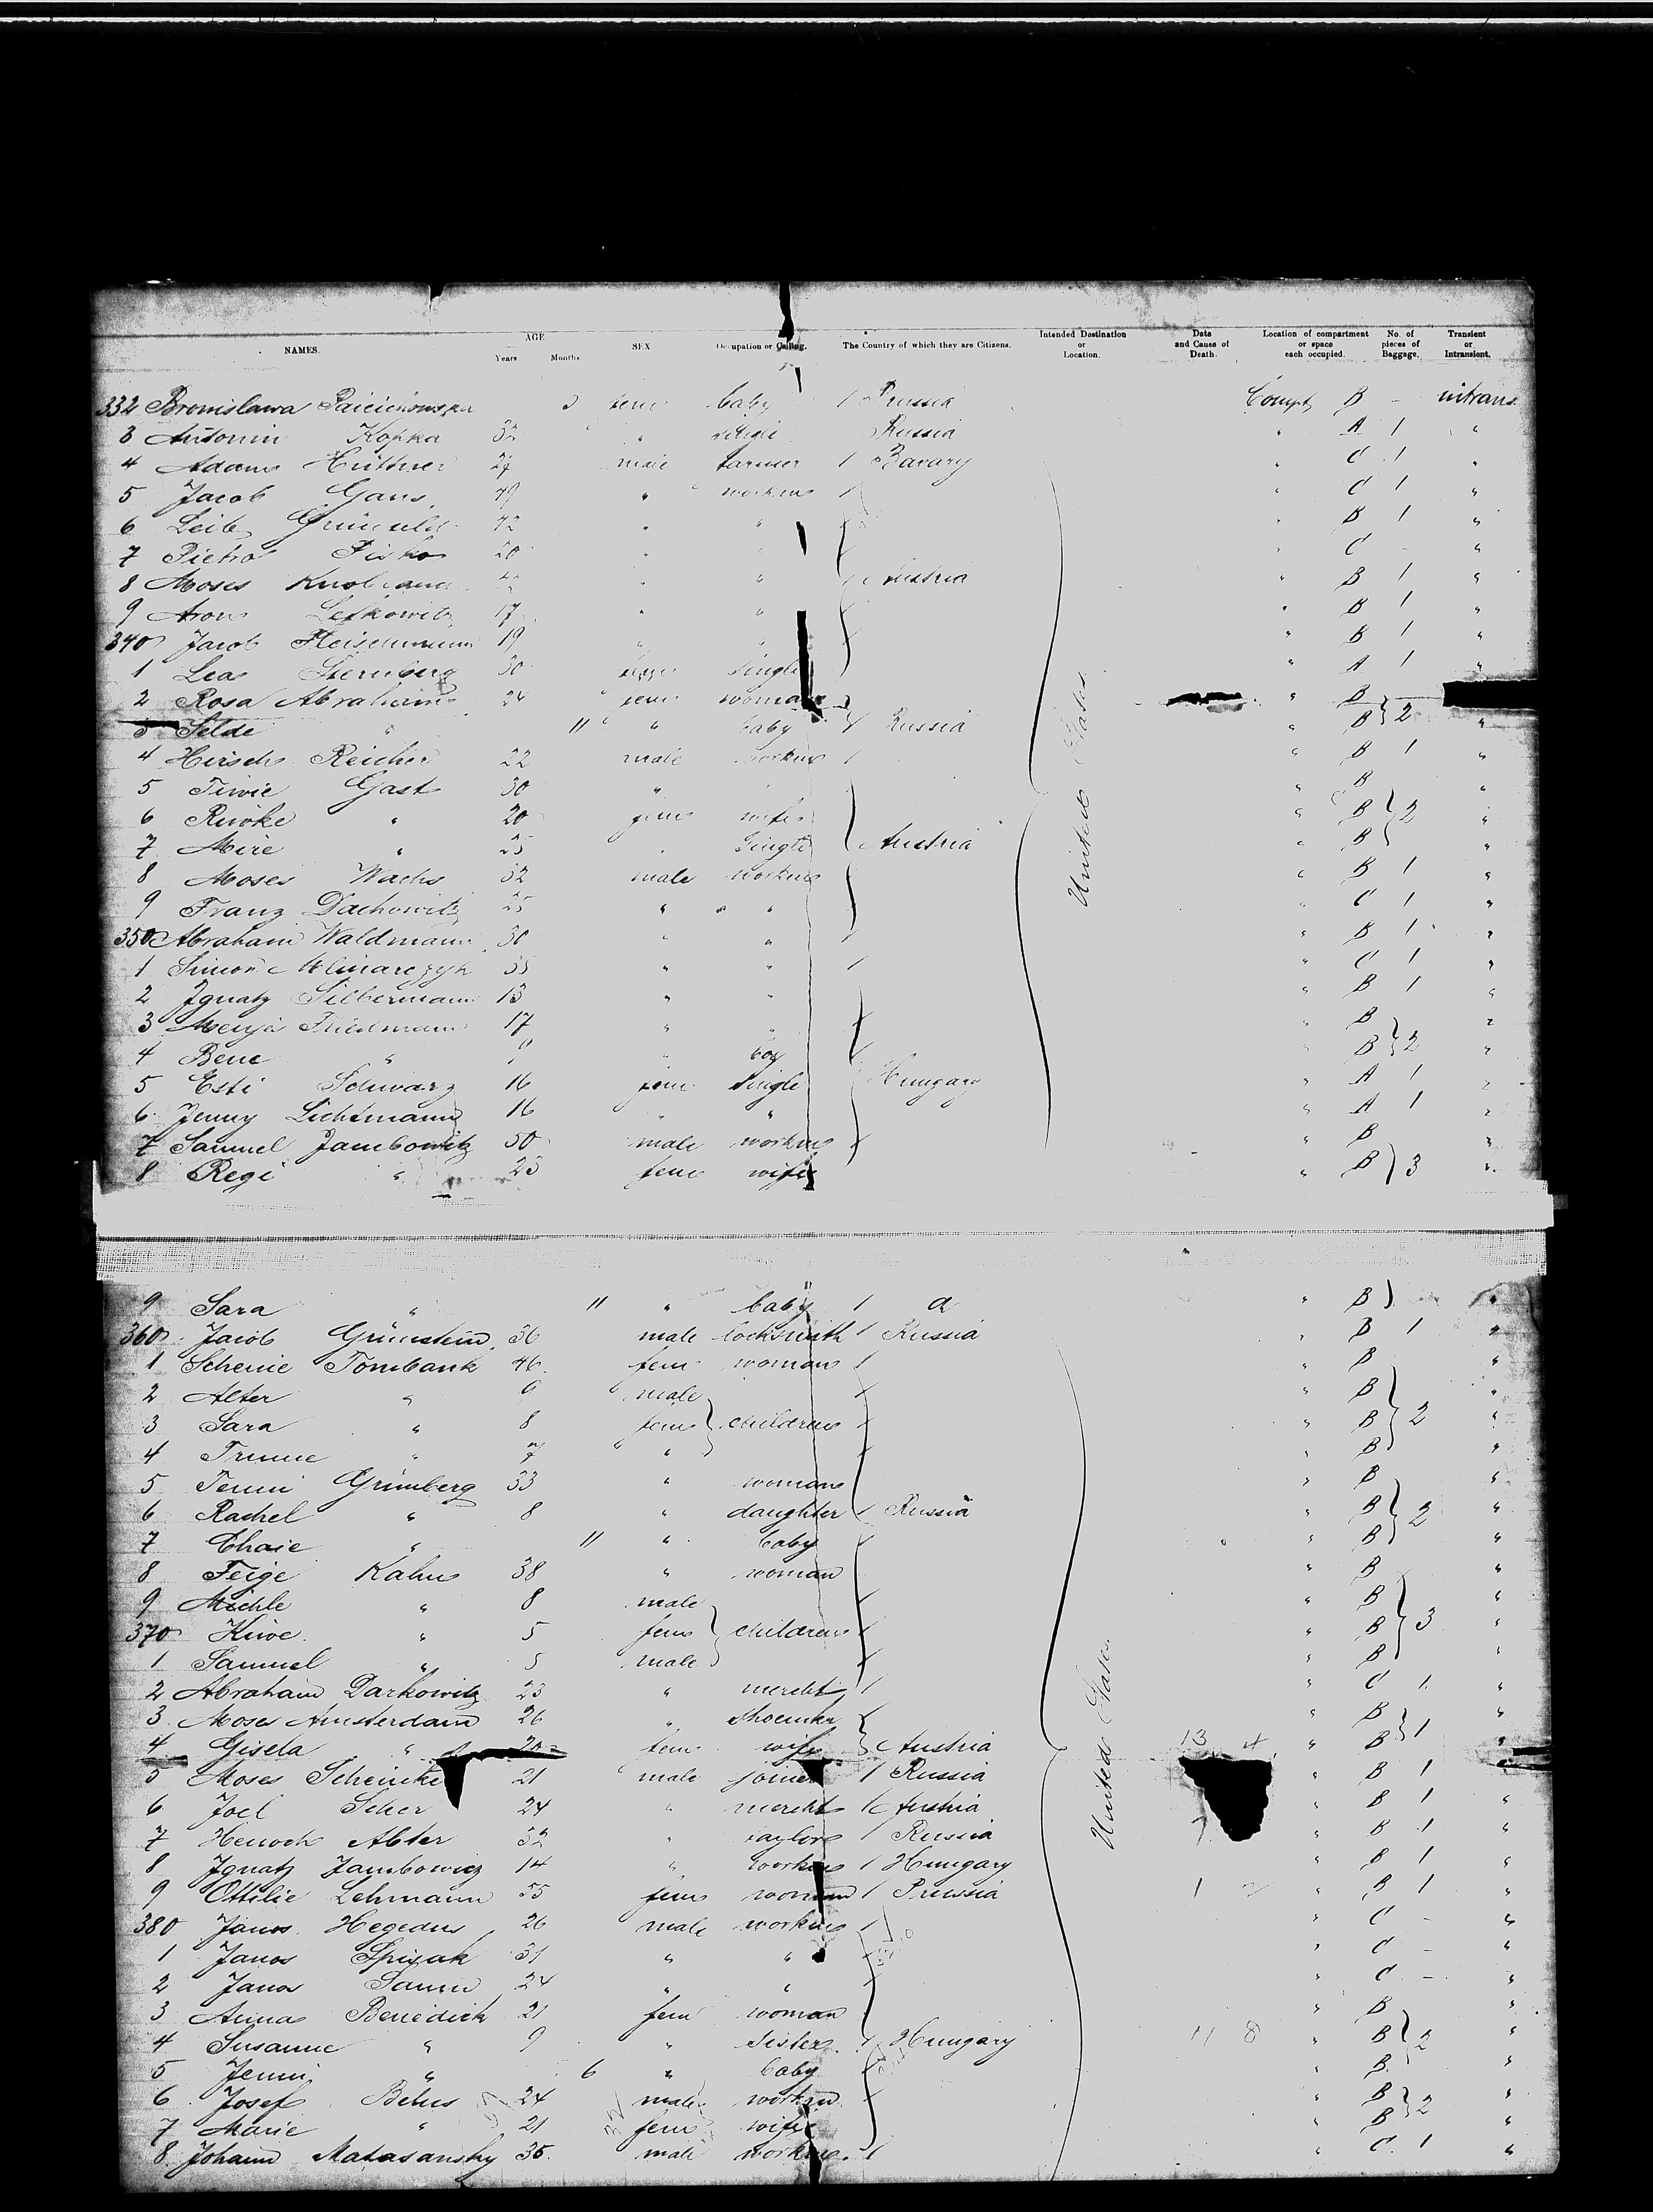 NAMES. AGE Years. Months. SEX Occupation or Calling. The Country of which they are Citizens. Intended Destination or Location. Date and Cause of Death. Location of compartment or space each occupied. No. of pieces of Baggage. Transient or Intransient.
332 Bronislawa fem baby 1 Prussia Compt B - intrans
3 Antonin Kopka 32 " single Russia " A 1 "
4 Adam Hüttner 27 male farmer 1 Bavary " C 1 "
5 Jacob Gans 49 " workm 1 " C 1 "
6 Leib 42 " " " B 1 "
7 Pietro 20 " " " C - "
8 Moses " " Austria " B 1 "
9 Aron Lefkowitz 17 " " " B 1 "
340 Jacob Fleischmann 19 " " " B 1 "
1 Lea Sternberg 30 fem single " A 1 "
2 Rosa Abraham 24 fem woman " B
3 Selde " 11 " baby 1 Russia " B 2 "
4 Hirsch Reicher 22 male workm 1 " B 1 "
5 Gast 30 " " B "
6 Riwke " 20 fem wife " B 2 "
7 Mire " 25 " single Austria " B "
8 Moses Wachs 32 male workm " B 1 "
9 Franz Dachowitz 25 " " " C 1 "
350 Abraham Waldmann 30 " " " B 1 "
1 Simon Mlinarczyk 35 " " 1 " C 1 "
2 Ignatz Silbermann 13 " " " B 1 "
3 Friedmann 17 " " " B "
4 Bene " 9 " boy " B 2 "
5 Esti Schwarz 16 fem single Hungary " A 1 "
6 Jenny Lichtmann 16 " " " A 1 "
7 Samuel Jambowitz 50 male workm " B "
8 Regi " 23 fem wife " B 3 "
United States
9 Sara " 11 " baby 1 " B "
360 Jacob Grünstein 36 male locksmith 1 Russia " B 1 "
1 Scheine Tombank 46 fem woman 1 " B "
2 Alter " 9 male " B "
3 Sara " 8 fem children " B 2 "
4 " 7 " " B "
5 Grünberg 33 " woman " B "
6 Rachel " 8 " daughter 1 Russia " B 2 "
7 Chaie " 11 " baby " B "
8 Feige Kahn 38 " woman " B "
9 Michle " 8 male " B "
370 " 5 fem children " B 3 "
1 Samuel " 5 male " B "
2 Abraham Darkowitz 23 " mercht 1 " C 1 "
3 Moses Amsterdam 26 " shoemkr " B "
4 Gisela " 20 fem wife Austria 13 4 " B 1 "
5 Moses 21 male joiner 1 Russia " B 1 "
6 Joel Scher 24 " mercht 1 Austria " B 1 "
7 Henoch Alter 32 " taylor 1 Russia " B 1 "
8 Ignatz Jambowicz 14 " workm 1 Hungary " B 1 "
9 Ottilie Lehmann 55 fem woman 1 Prussia 1 2 " B 1 "
380 Janos Hegedus 26 male workm 1 " C - "
1 Janos Spisak 31 " " " C - "
2 Janos 24 " " " C - "
3 Anna Benedick 21 fem woman " B "
4 Susanne " 9 " sister 1 Hungary 11 8 " B 2 "
5 Jenni " 6 " baby " B "
6 Josef 24 male workm " B 2 "
7 Marie " 21 fem wife " B "
8 Johann Matasansky 35 male workm 1 " C 1 "
United States